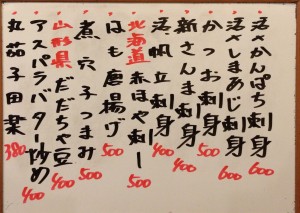 活かんぱち刺身 600
活しまあじ刺身 600
かつお刺身 500
新さんま刺身 400
活帆立刺身
北海道赤ほや刺し 500
はも唐揚げ 500
煮穴子つまみ 500
山形県だだちゃ豆 400
アスパラバター炒め 400
丸茄子田楽 380